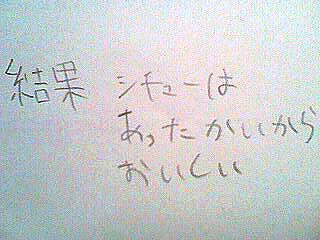 結果 シチューは
あったかいから
おいしい